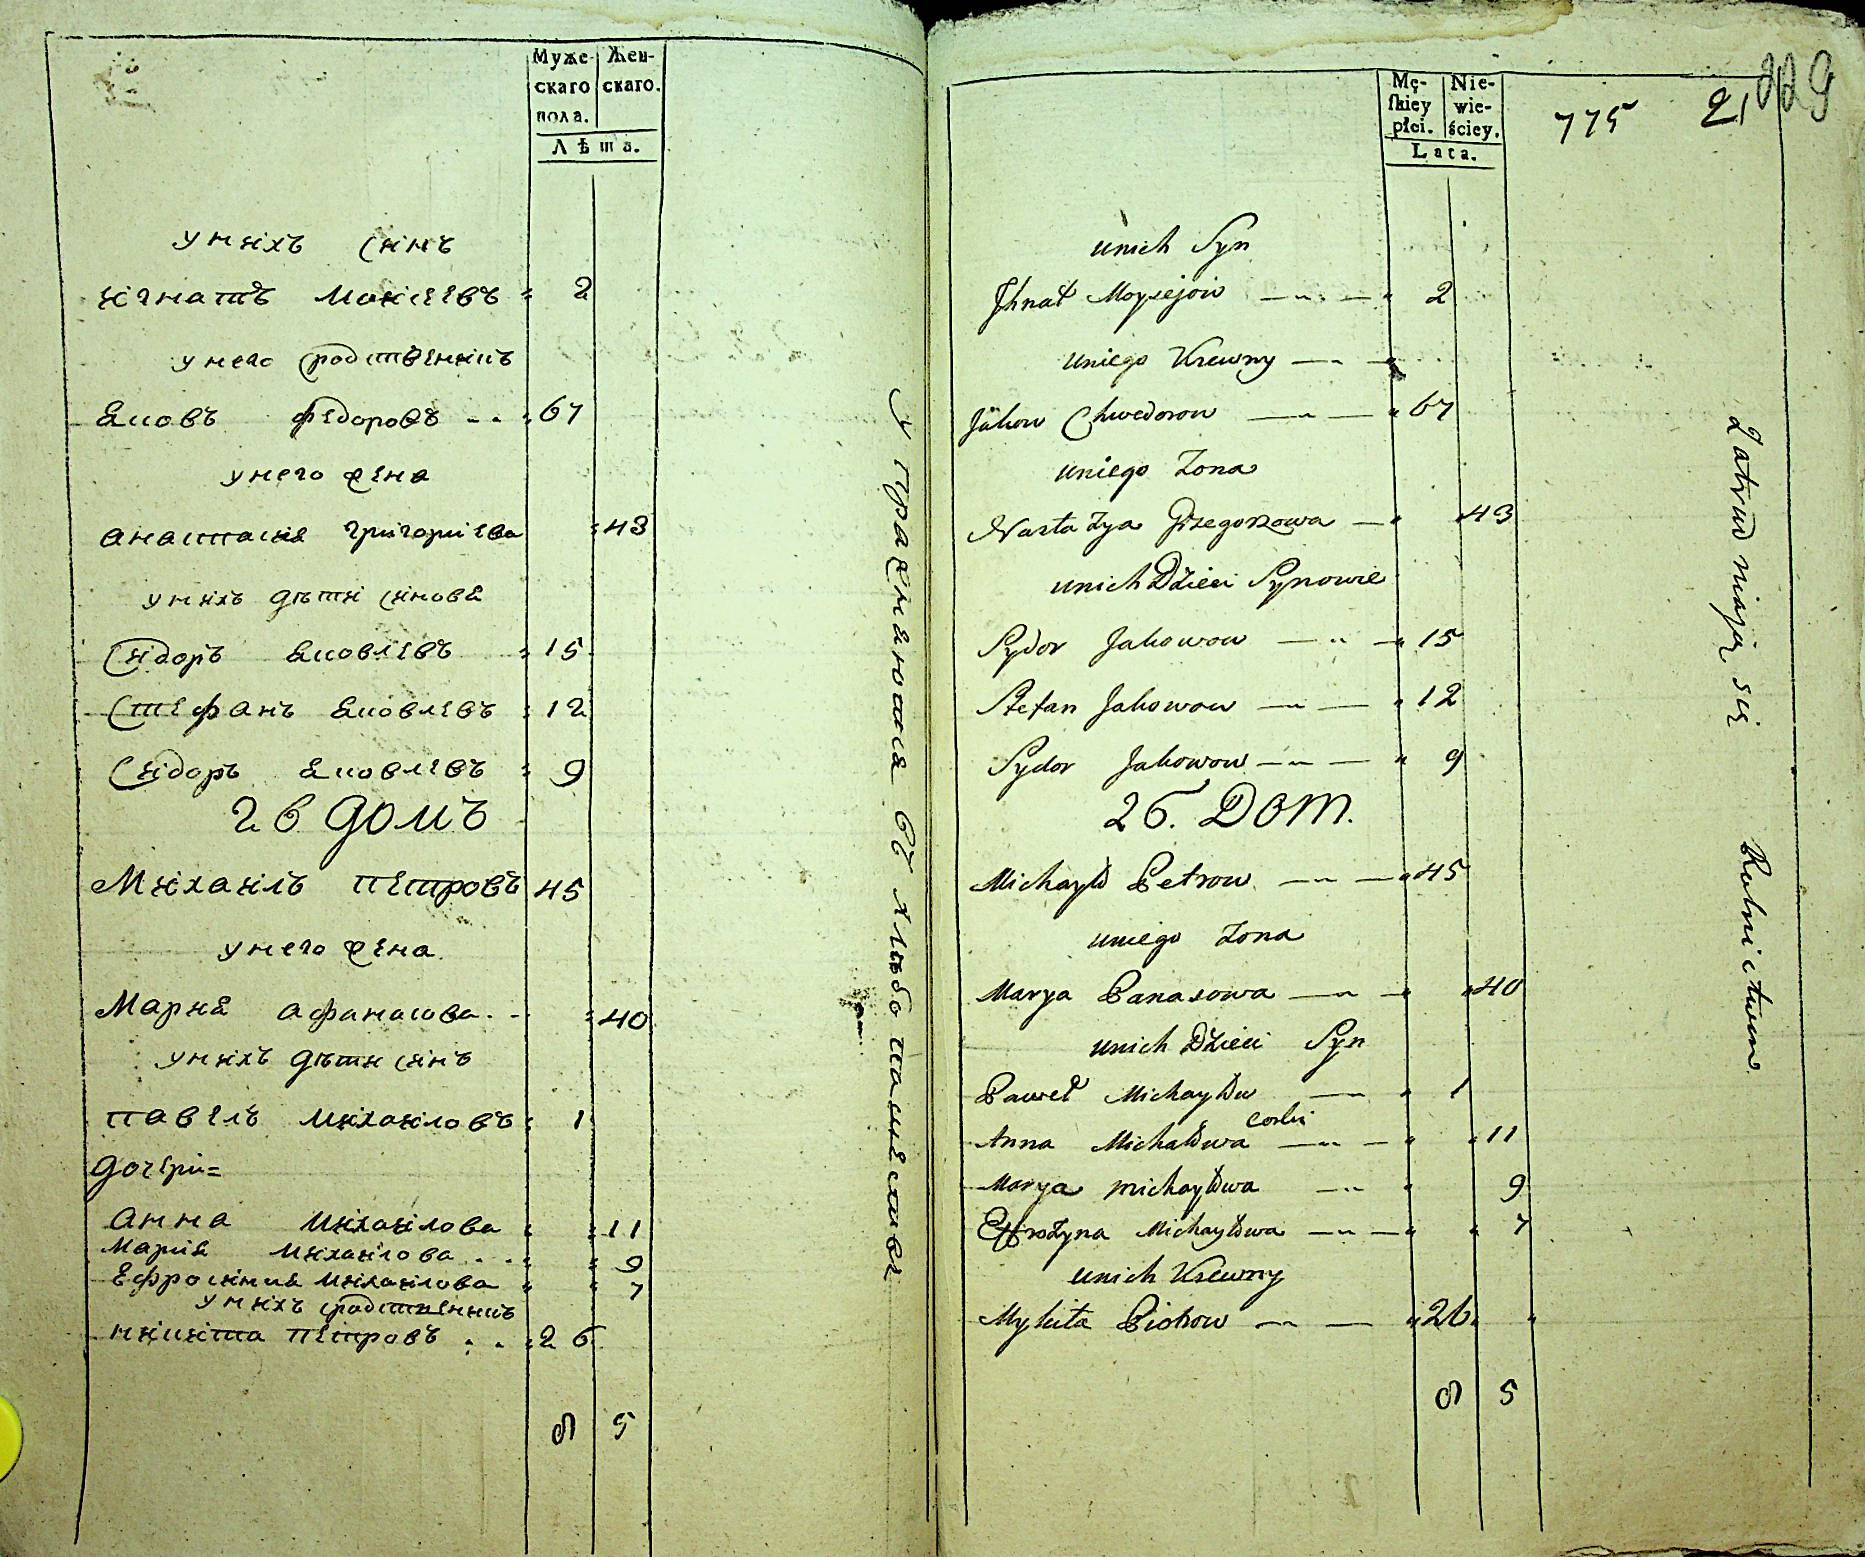 Муже- Жен-
скаго скаго.
пола.
Лѣта.
у нихъ синъ
игнатъ моисеевъ 2
у него сродственникъ
яковъ федоровъ 67
у него жена
анастасия григориева 43
у нихъ дѣти синовя
Сидоръ яковлевъ 15
Стефанъ яковлевъ 12
Сидоръ яковлевъ 9
26 домъ
Михаилъ петровъ 45
у него жена
Мария афанасова 40
у нихъ дѣти синъ
павелъ михаиловъ 1
дочери=
анна михаилова 11
мария михаилова 9
ефросиния михаилова 7
у нихъ сродственникъ
никита петровъ 26
8 5
Упражняются въ хлѣбопашестве
Mę- Nie-
skiey wie-
płci. ściey.
Lata.
775 21 229
unich Syn
Jhnat Moysejow 2
uniego Krewny
Jakow Chwedorow 67
uniego Zona
Nastazya Grzegorzowa 43
unich Dzieci Synowie
Sydor Jakowow 15
Stefan Jakowow 12
Sydor Jakowow 9
26. DOM.
Michayło Petrow 45
uniego Zona
Marya Panasowa 40
unich Dzieci Syn
Paweł Michayłow 1
corki
Anna Michałowa 11
Marya michayłowa 9
Effrozyna Michayłowa 7
unich Krewny
Mykita Piotrow 26
8 5
Zatrudniają się Rolnictwem